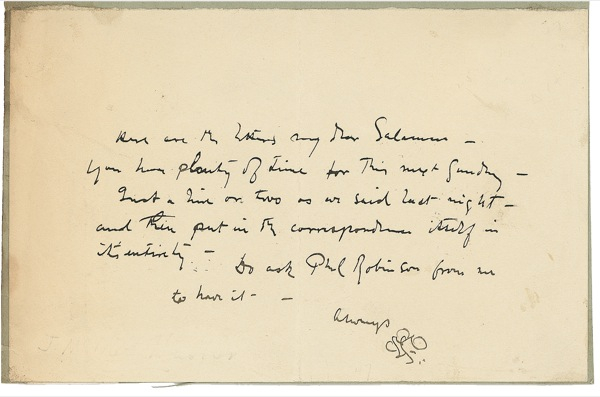 Here are the letters my dear Salaman —
You have plenty of time for this next Sunday —
Just a line or two as we said last night —
and then put in the correspondence itself in
its entirety — Do ask Phil Robinson from me
to have it — —
Always